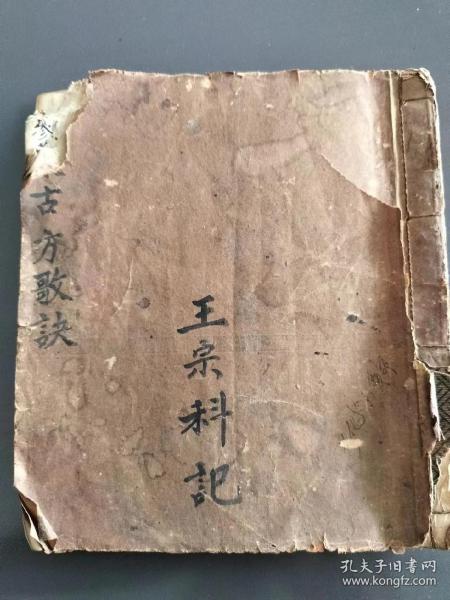 古方歌訣
王宗科記
孔夫子旧书网
www.kongfz.com